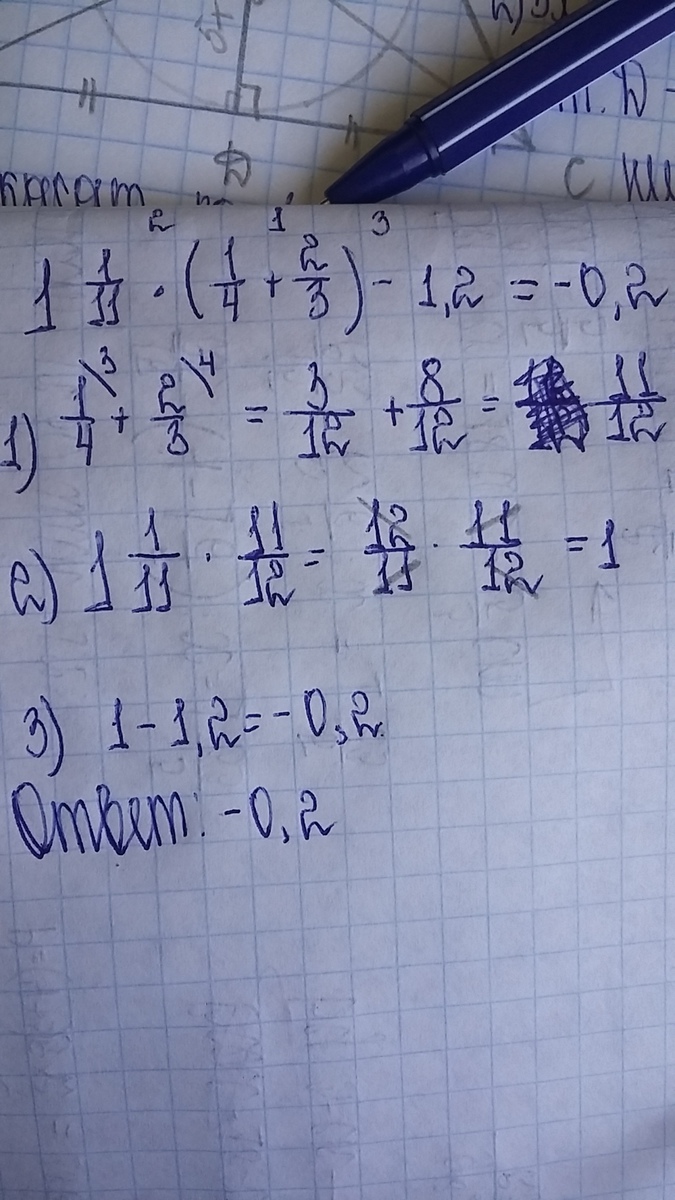 т. D -
с
2 1 3
1 1/11 · (1/4 + 2/3) - 1,2 = -0,2
1) 1/4 \3 + 2/3 \4 = 3/12 + 8/12 = 11/12
2) 1 1/11 · 11/12 = 12/11 · 11/12 = 1
3) 1 - 1,2 = -0,2
Ответ: -0,2